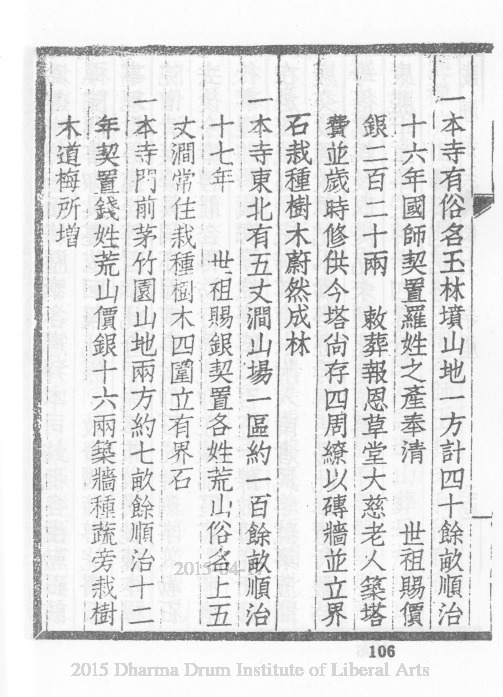 一本寺有俗名玉林墳山地一方計四十餘畝順治
十六年國師契置羅姓之產奉清　世祖賜價
銀二百二十兩　敕葬報恩草堂大慈老人築塔
費並歲時修供今塔尙存四周繚以磚牆並立界
石栽種樹木蔚然成林
一本寺東北有五丈澗山場一區約一百餘畝順治
十七年　世祖賜銀契置各姓荒山俗名上五
丈澗常住栽種樹木四圍立有界石
一本寺門前茅竹園山地兩方約七畝餘順治十二
年契置錢姓荒山價銀十六兩築牆種蔬旁栽樹
木道梅所增
106
2015 Dharma Drum Institute of Liberal Arts